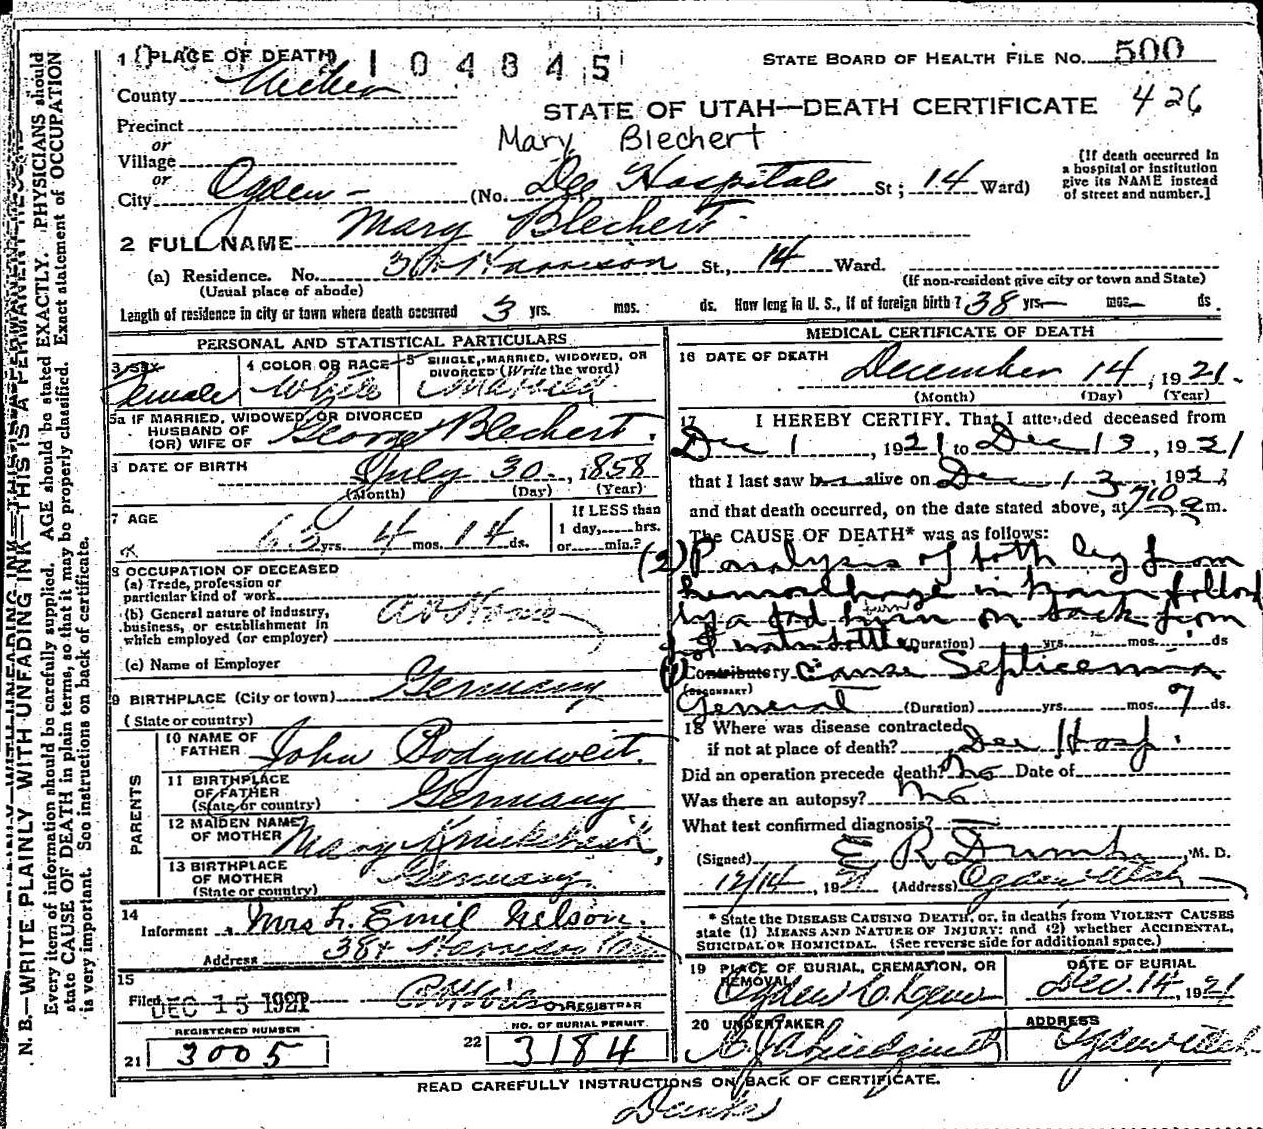 1 PLACE OF DEATH 104845
STATE BOARD OF HEALTH FILE NO. 500
County Weber
STATE OF UTAH—DEATH CERTIFICATE 426
Precinct
Mary Blechert
or
Village
or
City Ogden (No. Dee Hospital St; 14 Ward)
(If death occurred in
a hospital or institution
give its NAME instead
of street and number.]
2 FULL NAME Mary Blechert
(a) Residence. No. Harrison St., 14 Ward.
(Usual place of abode)
(If non-resident give city or town and State)
Length of residence in city or town where death occurred 3 yrs. mos. ds. How long in U. S., if of foreign birth? 38 yrs. mos. ds.
PERSONAL AND STATISTICAL PARTICULARS
3 SEX Female
4 COLOR OR RACE White
5 SINGLE, MARRIED, WIDOWED, OR
DIVORCED (Write the word)
Married
5a IF MARRIED, WIDOWED, OR DIVORCED
HUSBAND OF
(OR) WIFE OF George Blechert.
6 DATE OF BIRTH July 30, 1858
(Month) (Day) (Year)
7 AGE 63 yrs. 4 mos. 14 ds.
If LESS than
1 day, hrs.
or min.?
8 OCCUPATION OF DECEASED
(a) Trade, profession or
particular kind of work
(b) General nature of industry,
business, or establishment in
which employed (or employer)
At Home
(c) Name of Employer
9 BIRTHPLACE (City or town) Germany
(State or country)
PARENTS
10 NAME OF
FATHER John
11 BIRTHPLACE
OF FATHER
(State or country) Germany
12 MAIDEN NAME
OF MOTHER Mary
13 BIRTHPLACE
OF MOTHER
(State or country) Germany
14
Informent Mrs L. Emil Nelson.
Address Harrison
15
Filed DEC 15 1921 REGISTRAR
REGISTERED NUMBER
21 3005
NO. OF BURIAL PERMIT
22 3184
MEDICAL CERTIFICATE OF DEATH
16 DATE OF DEATH
December 14, 1921.
(Month) (Day) (Year)
17 I HEREBY CERTIFY. That I attended deceased from
Dec 1, 1921 to Dec 13, 1921
that I last saw h alive on Dec 13, 1921
and that death occurred, on the date stated above, at 710 a m.
The CAUSE OF DEATH* was as follows:
(2) Paralysis of both leg from
hemorrhage in brain followed
by a bad burn on back from
hot water bottle (Duration) yrs. mos. ds
(1) Contributory Cause Septicemia
(SECONDARY)
General (Duration) yrs. mos. 7 ds.
18 Where was disease contracted
if not at place of death? Dee Hosp.
Did an operation precede death? no Date of
Was there an autopsy? no
What test confirmed diagnosis?
(Signed) E R Dumke, M. D.
12/14, 1921 (Address) Ogden Utah
* State the DISEASE CAUSING DEATH, or, in deaths from VIOLENT CAUSES
state (1) MEANS AND NATURE OF INJURY: and (2) whether ACCIDENTAL,
SUICIDAL OR HOMICIDAL. (See reverse side for additional space.)
19 PLACE OF BURIAL, CREMATION, OR
REMOVAL
Ogden
DATE OF BURIAL
Dec. 14, 1921
20 UNDERTAKER
ADDRESS
Ogden Utah
READ CAREFULLY INSTRUCTIONS ON BACK OF CERTIFICATE.
N. B.—WRITE PLAINLY WITH UNFADING INK—THIS IS A PERMANENT RECORD
Every item of information should be carefully supplied. AGE should be stated EXACTLY. PHYSICIANS should
state CAUSE OF DEATH in plain terms, so that it may be properly classified. Exact statement of OCCUPATION
is very important. See instructions on back of certificate.